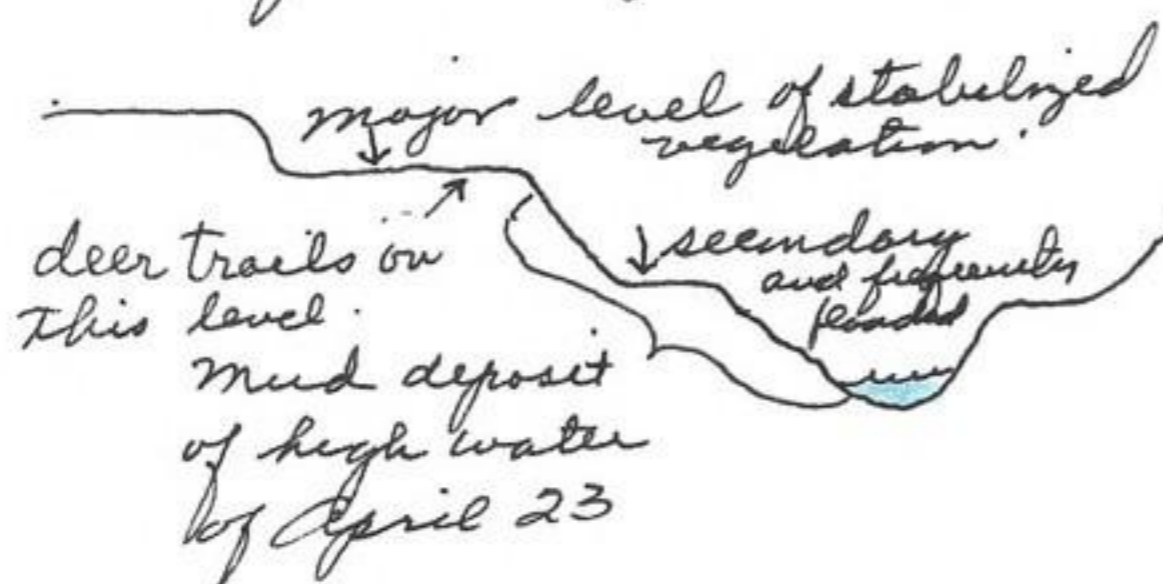 major level of stabilized
vegetation.
deer trails on
this level.
secondary
and frequently
flooded
Mud deposit
of high water
of April 23